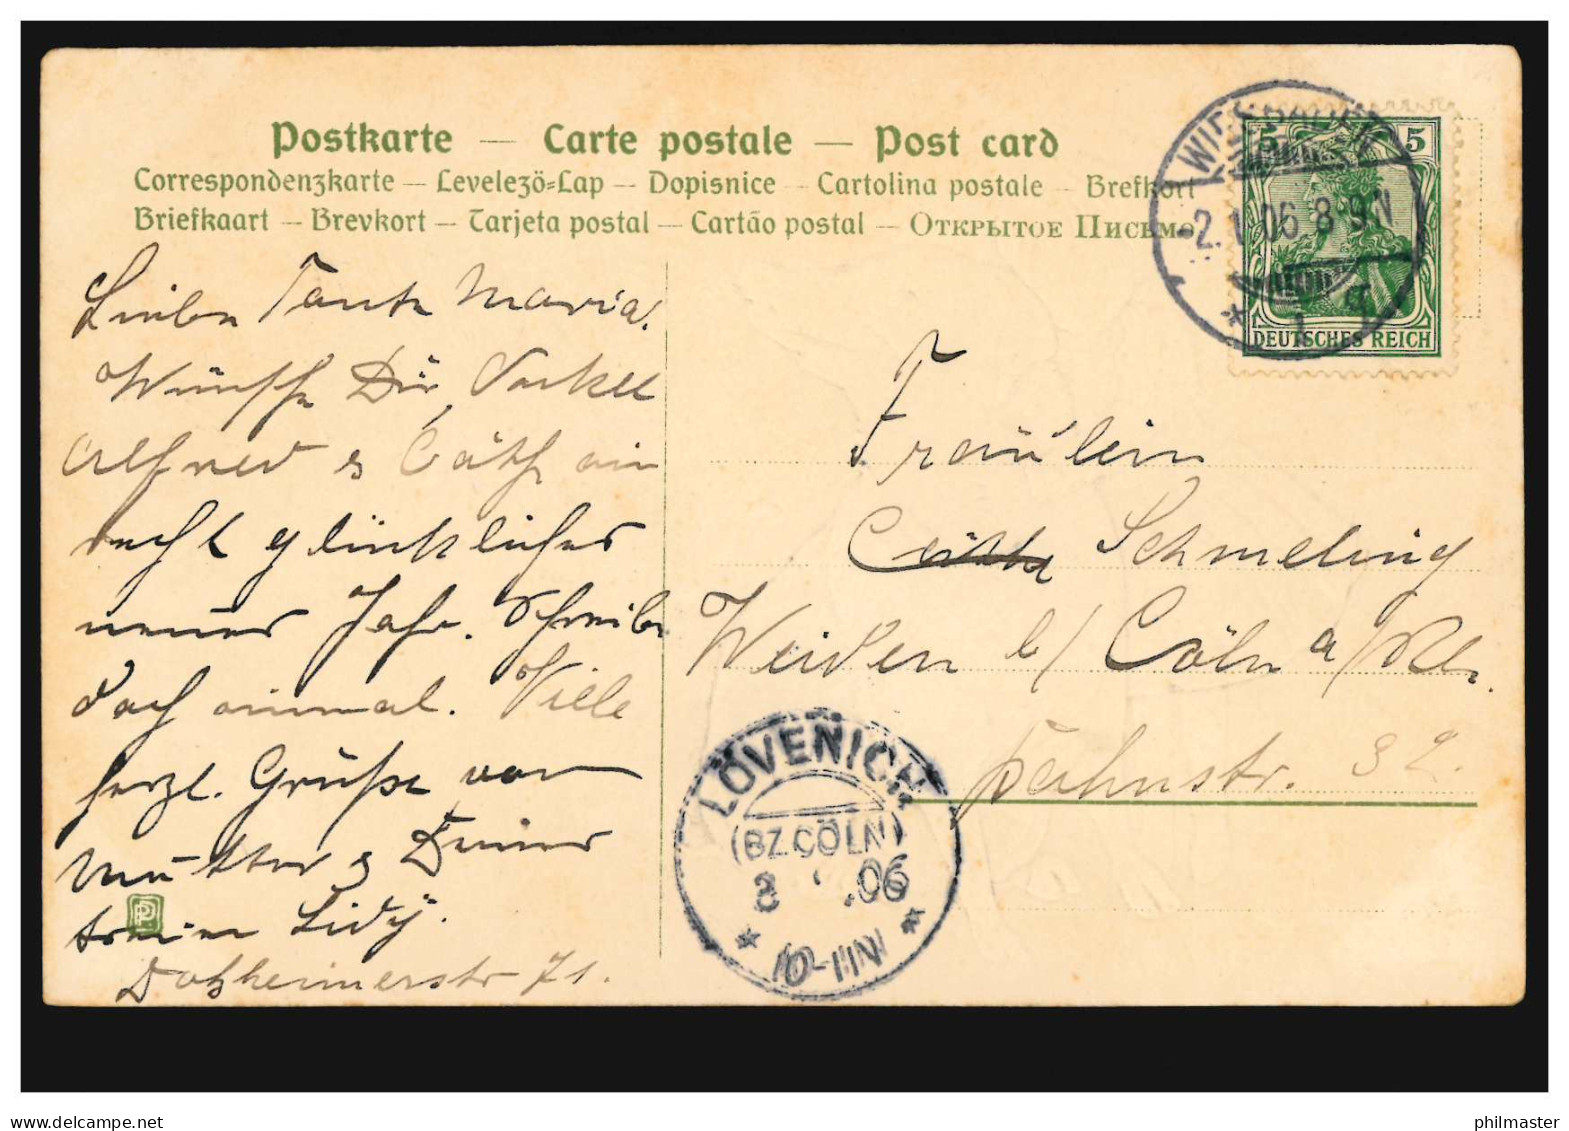 Postkarte — Carte postale — Post card
Correspondenzkarte — Levelezö-Lap — Dopisnice — Cartolina postale — Brefkort
Briefkaart — Brevkort — Tarjeta postal — Cartão postal — Открытое Письмо
WIESBADEN
-2.1.06 8-9N
* 1 g
5 5
DEUTSCHES REICH
Liebe Tante Maria.
Wünsche Dir, Onkel
Alfred & Cäth ein
recht glückliches
neues Jahr. Schreibe
doch einmal. Viele
herzl. Grüße von
Mutter & Deiner
Lidy.
Dotzheimerstr 71.
Fräulein
Schmeling
Weiden b/ Cöln a/Rh.
Bahnstr. 32.
LÖVENICH
(BZ. CÖLN)
3 .06
* 10-11N *
delcampe.net
philmaster